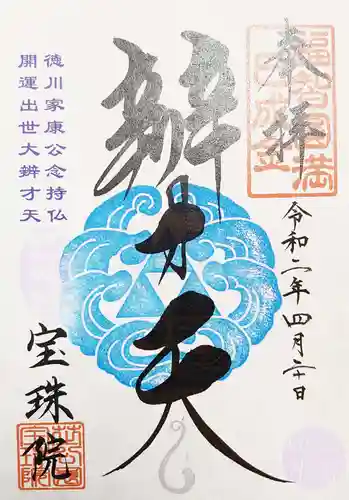 奉拝
令和二年四月二十日
辨才天
徳川家康公念持仏
開運出世大辨才天
宝珠院